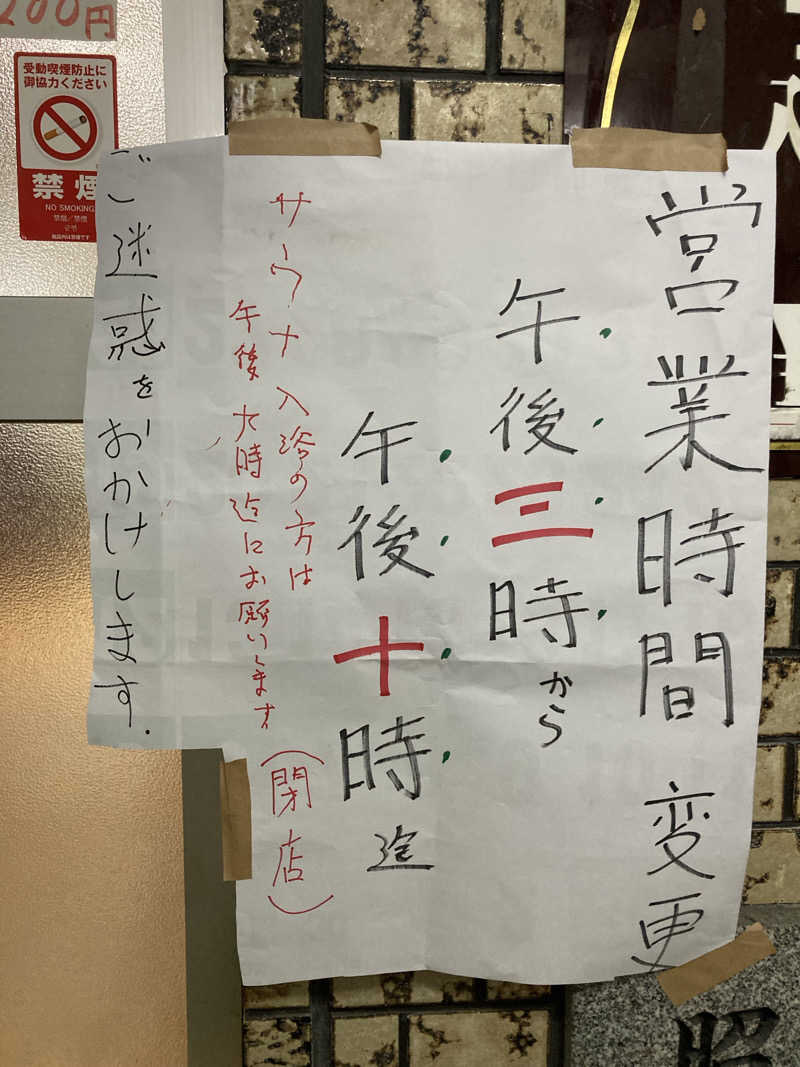 営業時間変更
午後三時から
午後十時迄
(閉店)
サウナ入浴の方は
午後九時迄にお願いします
ご迷惑をおかけします.
200円
受動喫煙防止に
御協力ください
禁煙
NO SMOKING
금연
昭